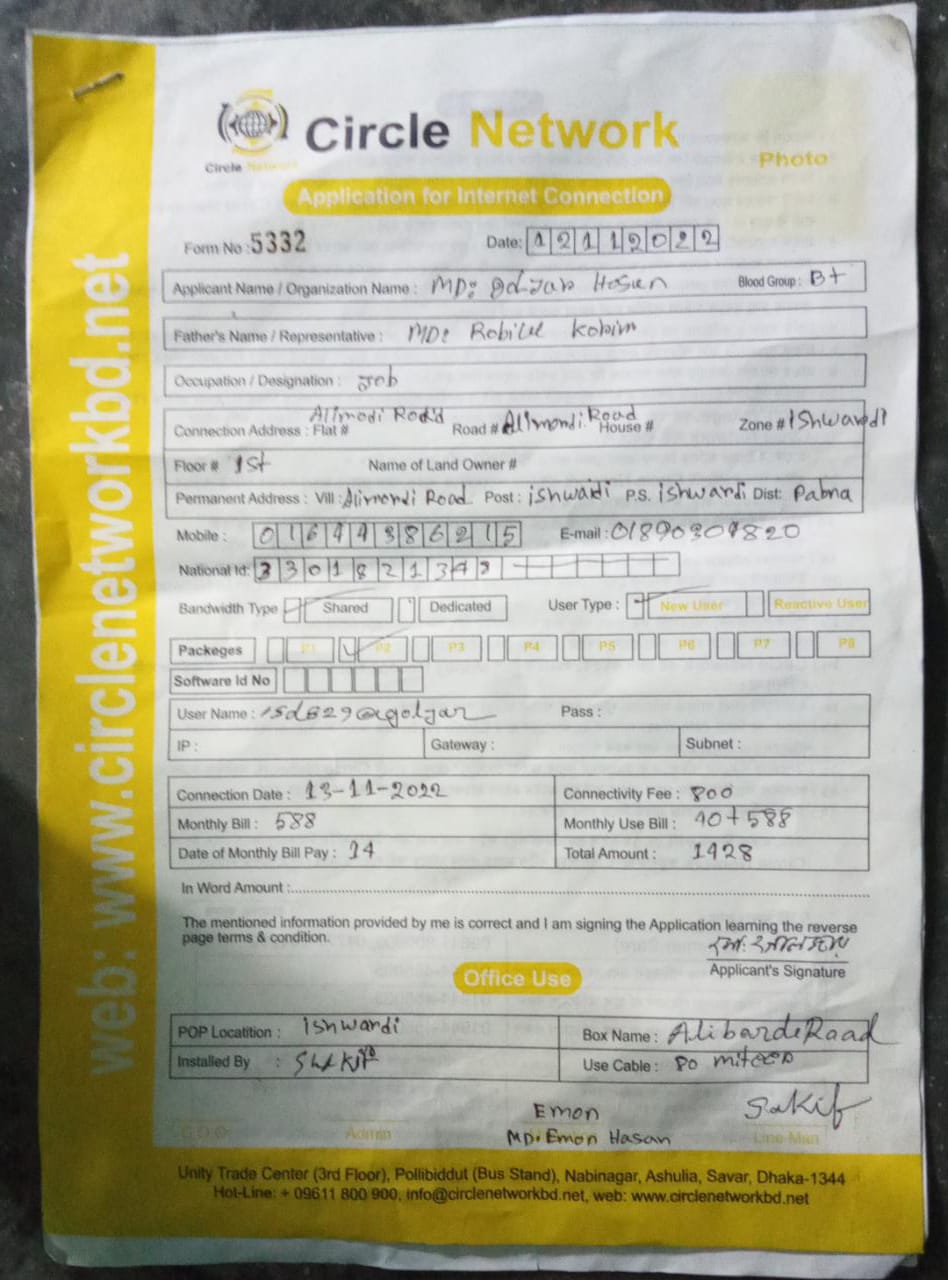 web: www.circlenetworkbd.net
Circle Network
Circle Network
Photo
Application for Internet Connection
Form No : 5332 Date: 12112022
Applicant Name / Organization Name : MD: Hosen Blood Group : B+
Father's Name / Representative : MD: Robiul Kobim
Occupation / Designation : Job
Connection Address : Flat # Road # House # Zone # IShwardi
Floor # 1st Name of Land Owner #
Permanent Address : Vill : Alimondi Road Post : ishwardi P.S. iShwardi Dist: Pabna
Mobile : E-mail :
National Id:
Bandwidth Type Shared Dedicated User Type : New User Reactive User
Packeges P1 P2 P3 P4 P5 P6 P7 P8
Software Id No
User Name : Pass :
IP : Gateway : Subnet :
Connection Date : 13-11-2022 Connectivity Fee : 800
Monthly Bill : 588 Monthly Use Bill : 40+588
Date of Monthly Bill Pay : 14 Total Amount : 1428
In Word Amount :
The mentioned information provided by me is correct and I am signing the Application learning the reverse
page terms & condition.
Applicant's Signature
Office Use
POP Locatition : Ishwardi Box Name : AlibardeRoad
Installed By : Use Cable : 80 miteer
Emon Sakif
C.O.O. Admin MD. Emon Hasan Line Man
Unity Trade Center (3rd Floor), Pollibiddut (Bus Stand), Nabinagar, Ashulia, Savar, Dhaka-1344
Hot-Line: + 09611 800 900, info@circlenetworkbd.net, web: www.circlenetworkbd.net